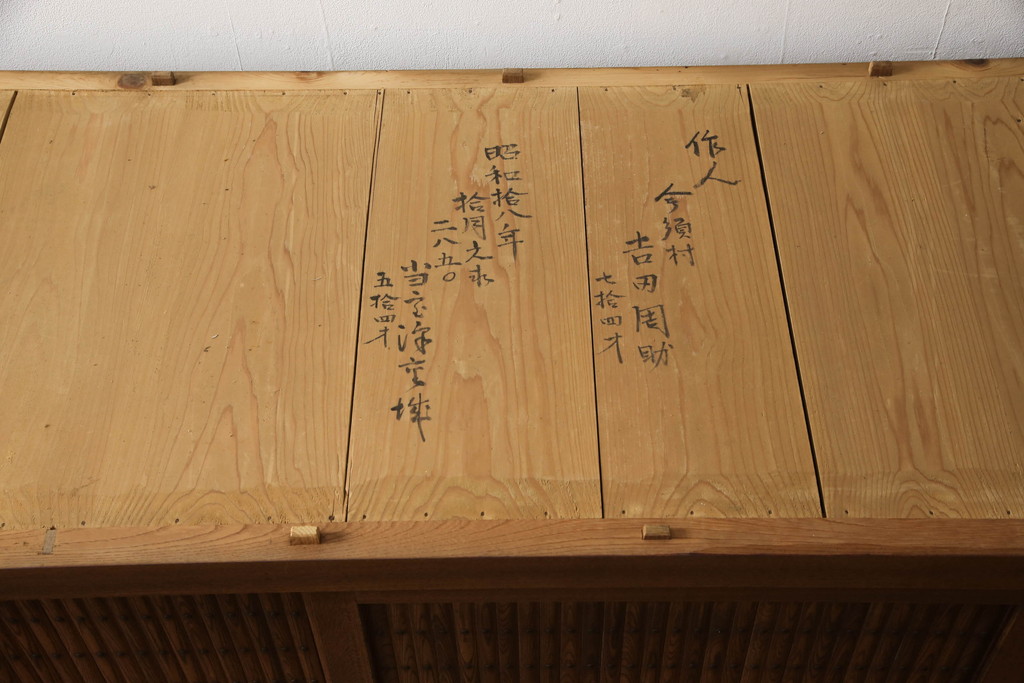 作人
今須村
吉田周助
七拾四才
昭和拾八年
拾月之求
二八五〇
当
五拾四才